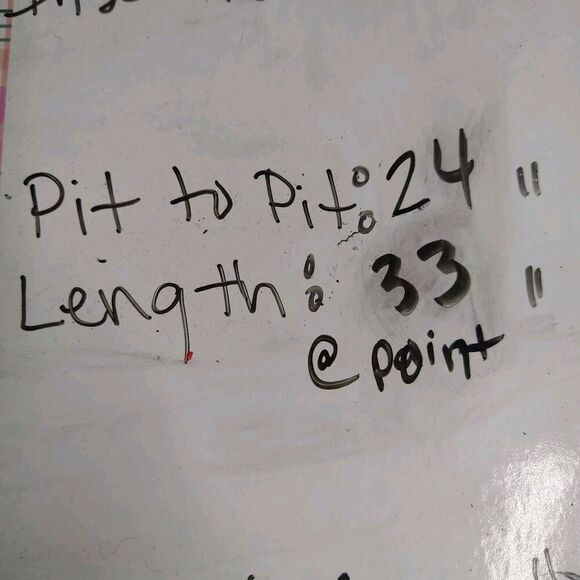 Pit to Pit: 24 "
Length: 33 "
@ point